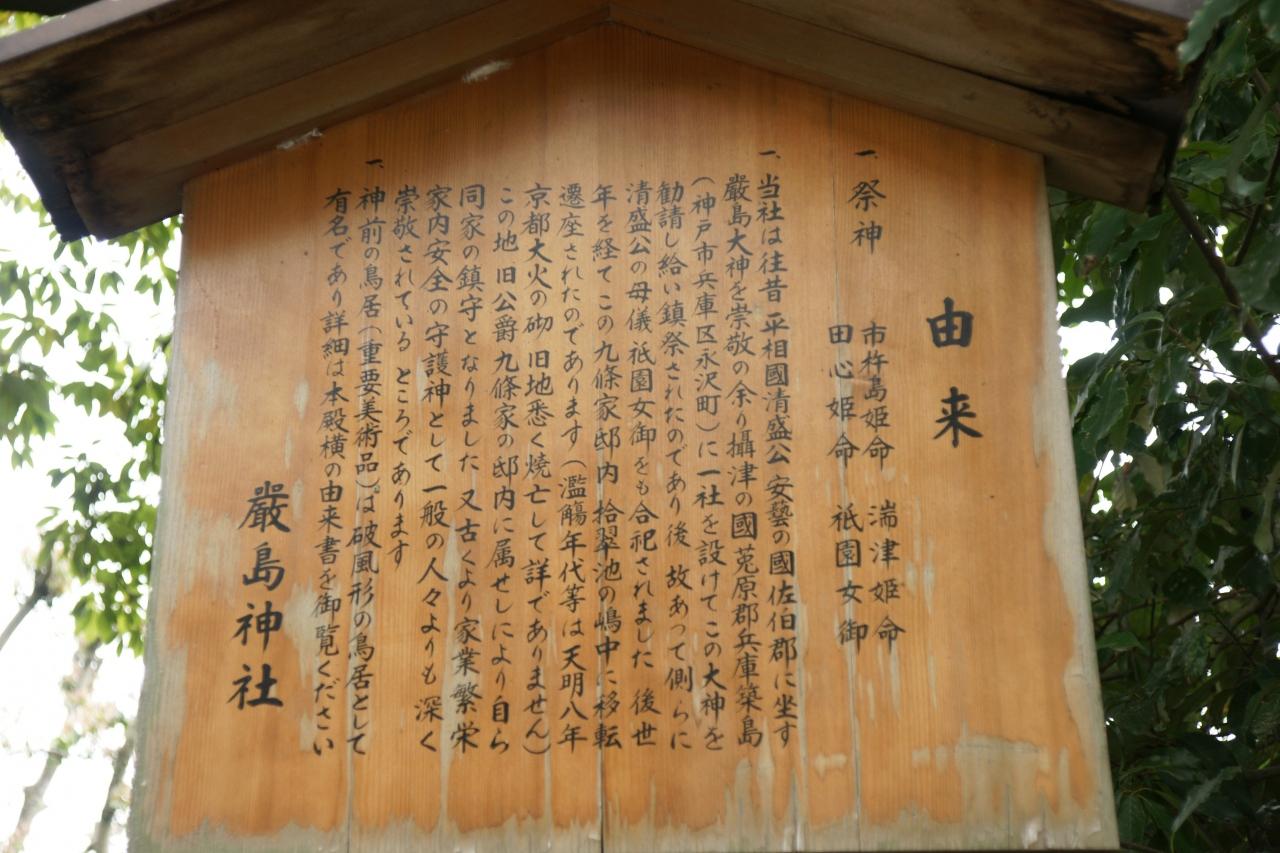 由来
一、祭神 市杵島姫命 湍津姫命
田心姫命 祇園女御
一、当社は往昔 平相國清盛公 安藝の國佐伯郡に坐す
嚴島大神を崇敬の余り攝津の國 菟原郡兵庫築島
(神戸市兵庫区永沢町)に一社を設けてこの大神を
勧請し給い鎮祭されたのであり後 故あって側らに
清盛公の母儀 祇園女御をも合祀されました 後世
年を経てこの九條家邸内 拾翠池の嶋中に移転
遷座されたのであります(濫觴年代等は天明八年
京都大火の砌 旧地悉く焼亡して詳でありません)
この地 旧公爵九條家の邸内に属せしにより自ら
同家の鎮守となりました 又古くより家業繁栄
家内安全の守護神として一般の人々よりも深く
崇敬されている ところであります
一、神前の鳥居(重要美術品)。は破風形の鳥居として
有名であり詳細は本殿横の由来書を御覧ください
嚴島神社